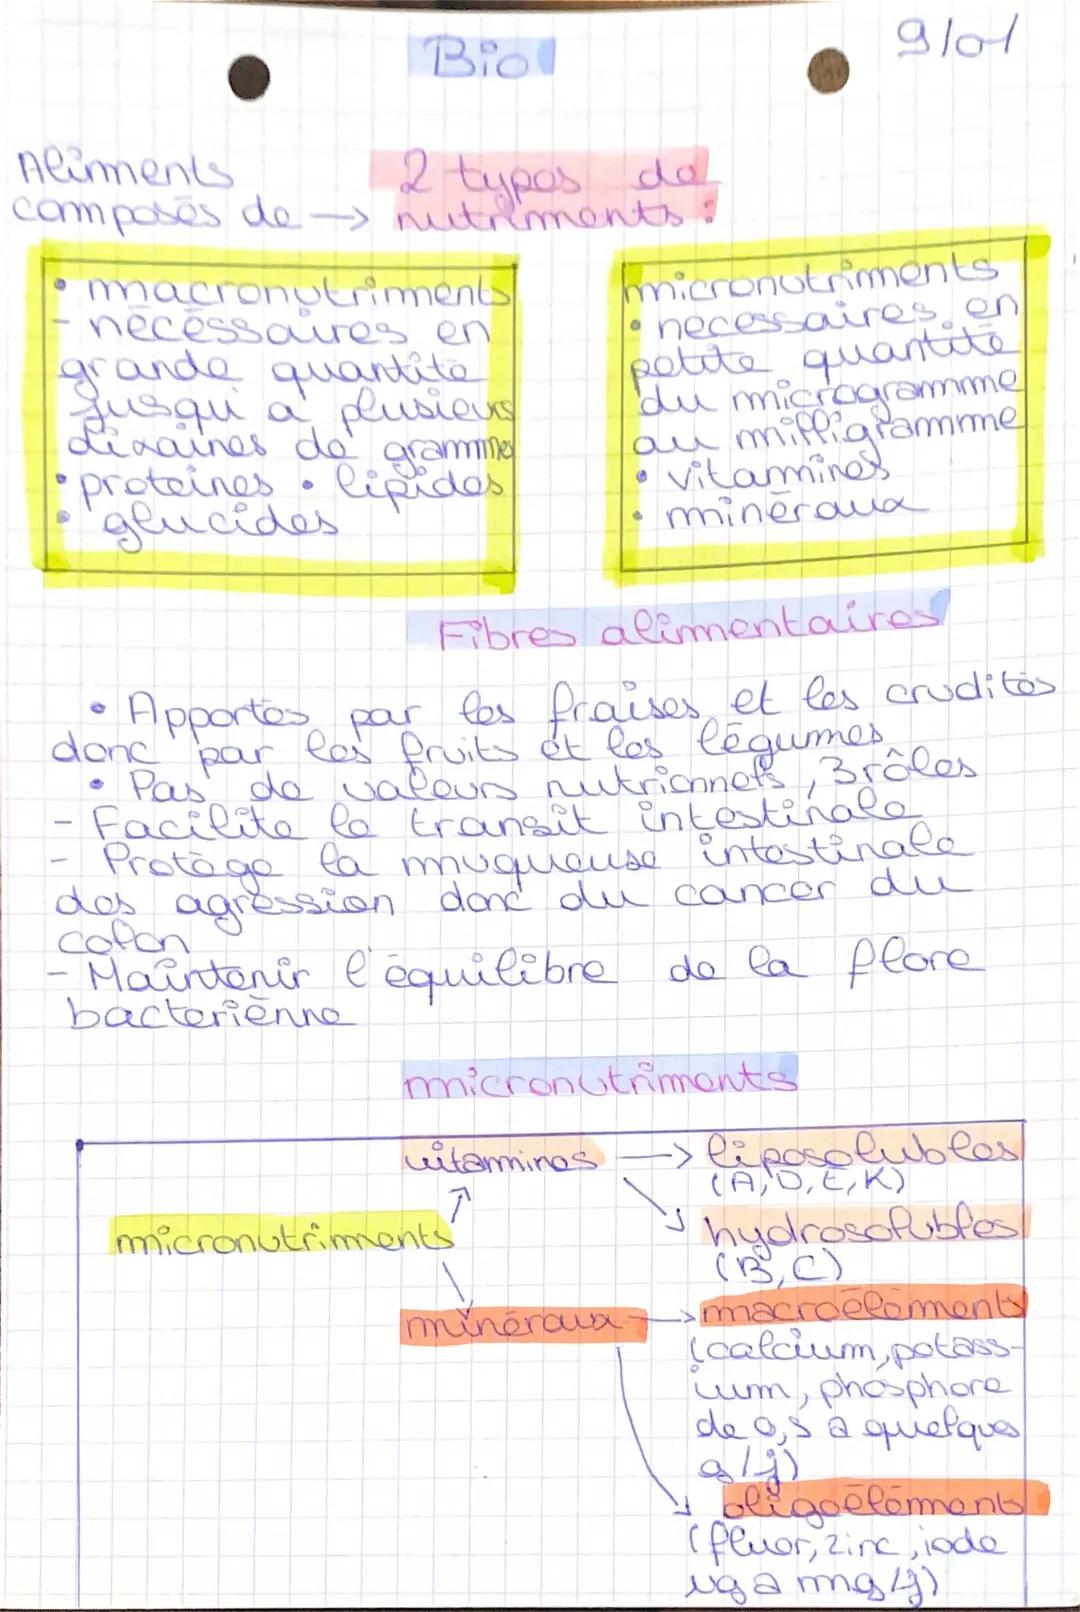 Bio
9/01
Aliments
composés de → 2 types de
nutriments :
• macronutriments
- nécéssaires en
grande quantité
jusqu'a plusieurs
dixaines de gramme
• proteines • lipides
• glucides
micronutriments
• necessaires en
petite quantité
du microgramme
au milligramme
• vitamines
• minéraux
Fibres alimentaires
• Apportés par les fraises et les crudités
donc par les fruits et les légumes
• Pas de valeurs nutrionnels, 3 rôles
- Facilite le transit intestinale
- Protège la muqueuse intestinale
des agression donc du cancer du
colon
- Maintenir l'équilibre de la flore
bacteriènne
micronutriments
vitamines → liposolubles
(A, D, E, K)
hydrosolubles
(B, C)
micronutriments
minéraux → macroéléments
(calcium, potass-
ium, phosphore
de 0,5 a quelques
g/j)
oligoéléments
(fluor, zinc, iode
ug a mg/j)